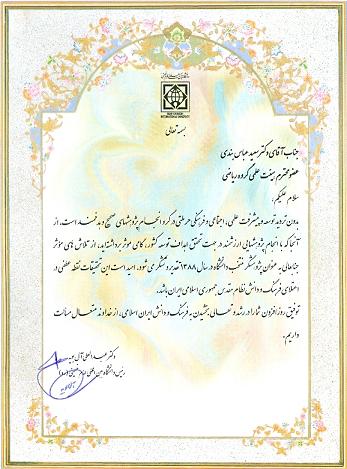 بسمه تعالی
جناب آقای دکتر سعید عباس بندی
عضو محترم هیئت علمی گروه ریاضی
سلام علیکم،
بدون تردید توسعه و پیشرفت علمی، اجتماعی و فرهنگی هر ملتی در گرو انجام پژوهشهای صحیح و هدفمند است. از
آنجا که با انجام پژوهشهایی ارزشمند در جهت تحقق اهداف توسعه کشور، گامی موثر برداشته‌اید، از تلاش های مؤثر
جنابعالی به عنوان پژوهشگر منتخب دانشگاه در سال ۱۳۸۸ تقدیر و تشکر می شود. امید است این تحقیقات نقطه عطفی در
اعتلای فرهنگ و دانش نظام مقدس جمهوری اسلامی ایران باشد.
توفیق روز افزون شما را در رشد و تعالی بخشیدن به فرهنگ و دانش ایران اسلامی، از خداوند متعال مسألت
داریم.
دکتر عبدالعلی آل بویه
رئیس دانشگاه بین المللی امام خمینی (ره)